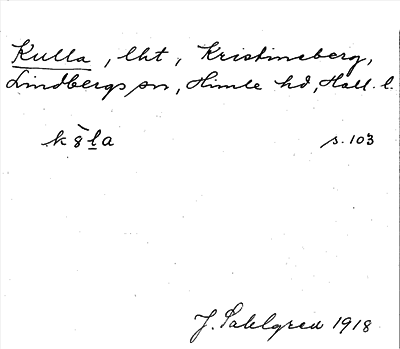 Kulla, lht, Kristineberg,
Lindbergs sn, Himle hd, Hall. l.
k8̀l̲a s. 103
J. Sahlgren 1918